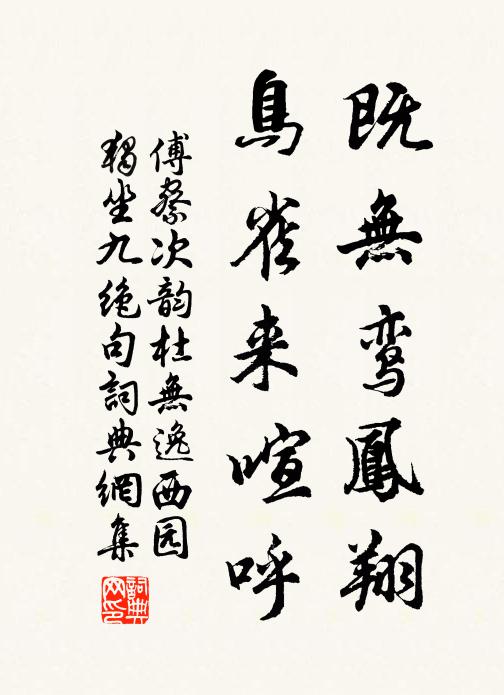 既無鸾鳳翔
鳥雀来喧呼
傅察次韵杜無逸西园
獨坐九绝句詞典網集
詞典